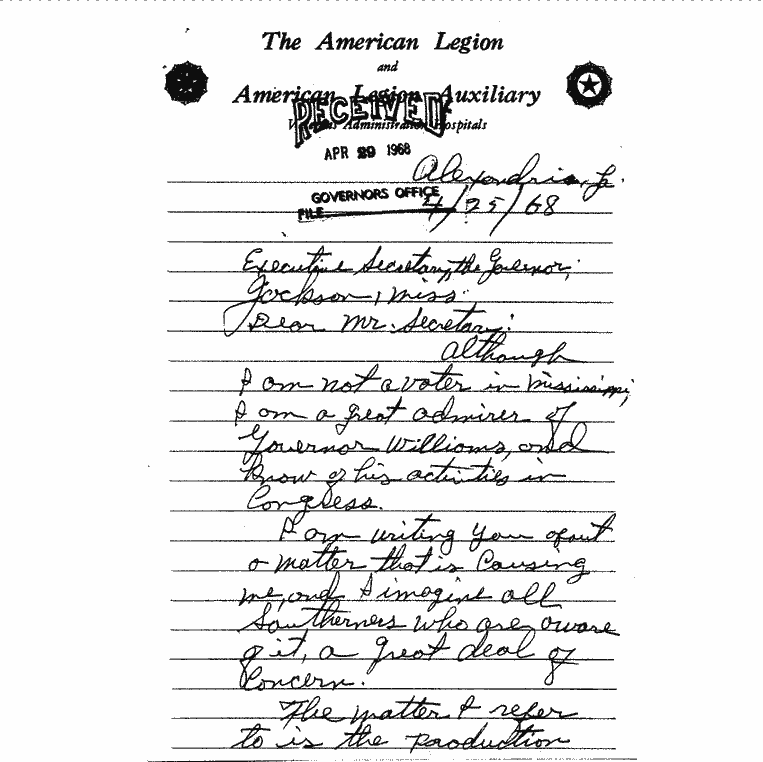 The American Legion
and
American Legion Auxiliary
Veterans Administration Hospitals
RECEIVED
APR 29 1968
GOVERNORS OFFICE
FILE
Alexandria, La.
4/25/68
Executive Secretary, the Governor,
Jackson, Miss.
Dear Mr. Secretary:
Although
I am not a voter in Mississippi,
I am a great admirer of
Governor Williams, and
know of his activities in
Congress.
I am writing you about
a matter that is causing
me, and I imagine all
Southerners who are aware
of it, a great deal of
concern.
The matter I refer
to is the production